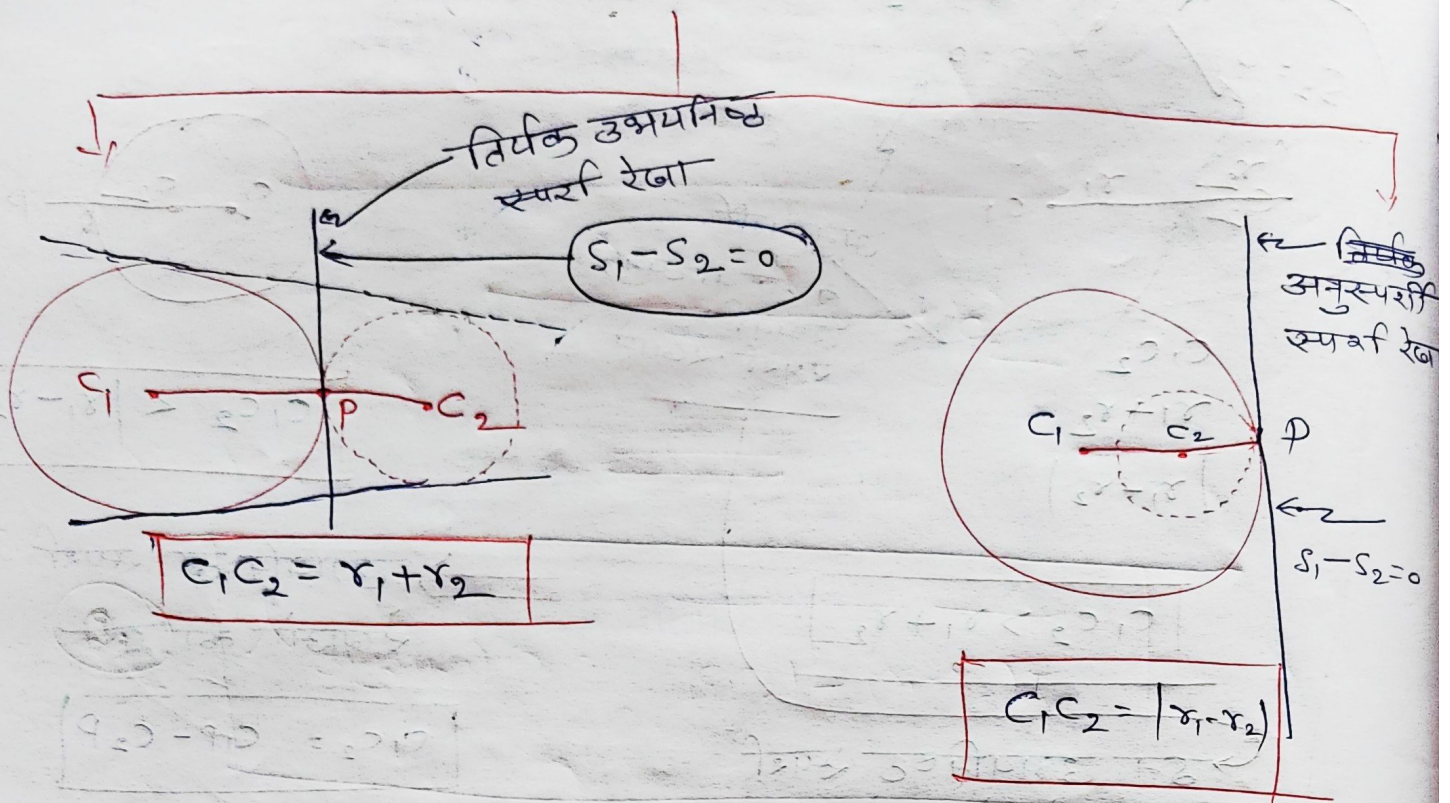 तिर्यक उभयनिष्ठ
स्पर्श रेखा
S₁-S₂=0
C₁
P
C₂
C₁C₂ = r₁+r₂
अनुस्पर्शी
स्पर्श रेखा
C₁
C₂
P
S₁-S₂=0
C₁C₂ = |r₁-r₂|